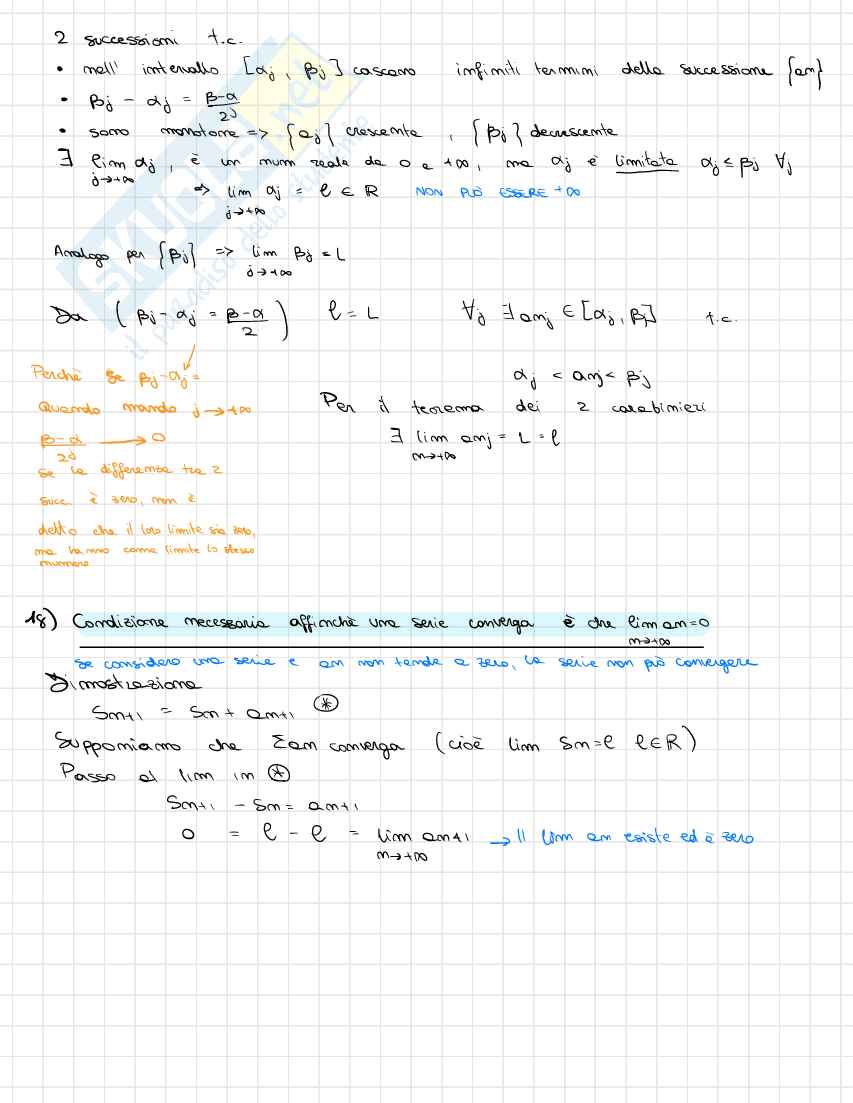 2 successioni t.c.
• nell' intervallo [αj, βj] cascano infiniti termini della successione {an}
• βj - αj = β-α / 2^j
• sono monotone => {αj} crescente, {βj} decrescente
∃ lim j→+∞ αj, è un num reale da 0 a +∞, ma αj è limitata αj ≤ βj ∀j
=> lim j→+∞ αj = l ∈ R NON PUÒ ESSERE +∞
Analogo per {βj} => lim j→+∞ βj = L
Da (βj - αj = β-α / 2) l = L ∀j ∃ anj ∈ [αj, βj] t.c.
αj < anj < βj
Per il teorema dei 2 carabinieri
∃ lim n→+∞ anj = L = l
Perchè se βj - αj =
Quando mando j → +∞
β-α / 2^j → 0
se la differenza tra 2
succ. è zero, non è
detto che il loro limite sia zero,
ma hanno come limite lo stesso
numero
18) Condizione necessaria affinchè una serie converga è che lim n→+∞ an = 0
se considero una serie e an non tende a zero, la serie non può convergere
Dimostrazione
Sn+1 = Sn + an+1 ⊛
Supponiamo che Σan converga (cioè lim Sn = l l∈R)
Passo al lim in ⊛
Sn+1 - Sn = an+1
0 = l - l = lim n→+∞ an+1 → Il lim an esiste ed è zero
SKUOLA.net
il paradiso dello studente